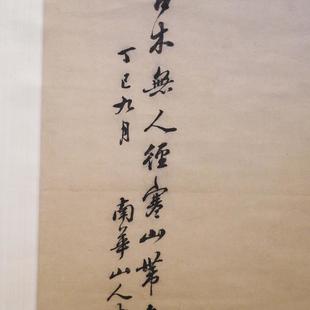 木無人徑寒山帶
丁巳九月
南華山人